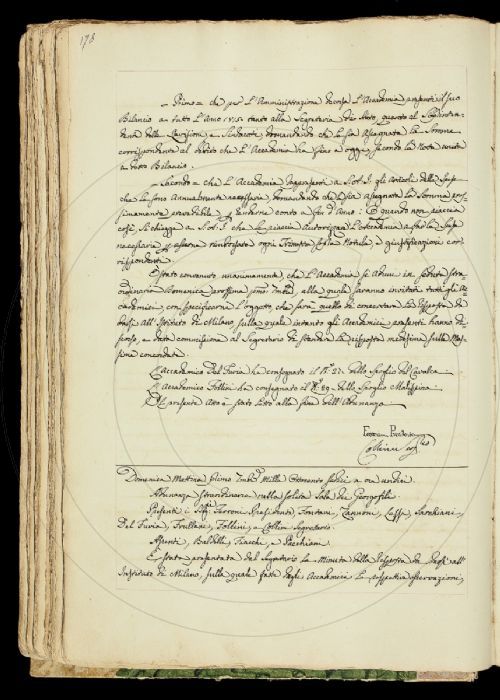 178
= Primo = che per l'Amministrazione decorsa l'Accademia presenti il suo
Bilancio a tutto l'Anno 1815. tanto alla Segreteria di Stato, quanto al Soprinten-
dente delle e Sindacati, domandando che le sia assegnata la Somma
corrispondente al debito che l'Accademia ha fino a oggi, secondo la Nota unita
a detto Bilancio.
= Secondo = che l'Accademia rappresenti a S. A. I. gli Articoli delle Spese
che le sono Annualmente necessarie, domandando che le sia assegnata la Somma pros-
simamente prevedibile, per renderne conto a fin d'Anno: E quando non piaccia
così, si chiegga a S. A. I. che le piaccia autorizzare l'Accademia a far le Spese
necessarie per esserne rimborsata ogni Trimestre colla Notula, e giustificazioni cor-
rispondenti.
È stato convenuto unanimamente, che l'Accademia si aduni in seduta stra-
ordinaria Domenica prossima primo alla quale saranno invitati tutti gli Ac-
cademici, con specificarne l'oggetto, che sarà quello di concertare la Risposta da
darsi all'Istituto di Milano, sulla quale intanto gli Accademici presenti hanno di-
scorso, e data commissione al Segretario di stendere la risposta medesima sulle Mas-
sime concordate.
L'Accademico del Furia ha consegnato il N.° 27. dello Spoglio del Cavalca
L'Accademico Follini ha consegnato il N.° 29. dello Spoglio Malispini.
Il presente Atto è stato letto alla fine dell'Adunanza.
Collini
Domenica Mattina primo Mille Ottocento sedici a ore undici.
Adunanza straordinaria nella solita Sala dei Georgofili.
Presenti i Sigg. Ferroni Presidente, Fontani, Zannoni, Sarchiani,
Del Furia, Frullani, Follini, e Collini Segretario.
Assenti, Baldelli, Fiacchi, e Pacchiani.
È stata presentata dal Segretario la Minuta della Risposta da darsi all'
Instituto di Milano, sulla quale fatte dagli Accademici le rispettive osservazioni,